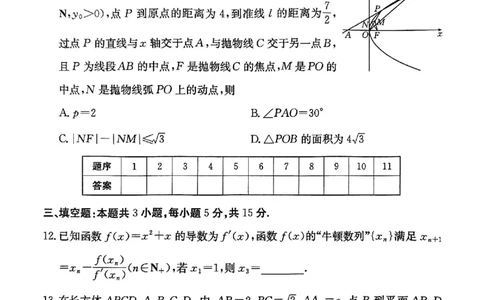 N,y₀>0),点 P 到原点的距离为 4,到准线 l 的距离为 7/2,
过点 P 的直线与 x 轴交于点 A,与抛物线 C 交于另一点 B,
且 P 为线段 AB 的中点,F 是抛物线 C 的焦点,M 是 PO 的
中点,N 是抛物线弧 PO 上的动点,则
P
N M
A O F x
A. p=2 B. ∠PAO=30°
C. |NF|-|NM|≤√3 D. △POB 的面积为 4√3
题序 1 2 3 4 5 6 7 8 9 10 11
答案
三、填空题:本题共 3 小题,每小题 5 分,共 15 分.
12. 已知函数 f(x)=x²+x 的导数为 f′(x),函数 f(x)的“牛顿数列”{xₙ}满足 xₙ₊₁
=xₙ-f(xₙ)/f′(xₙ)(n∈N₊),若 x₁=1,则 x₃=______.